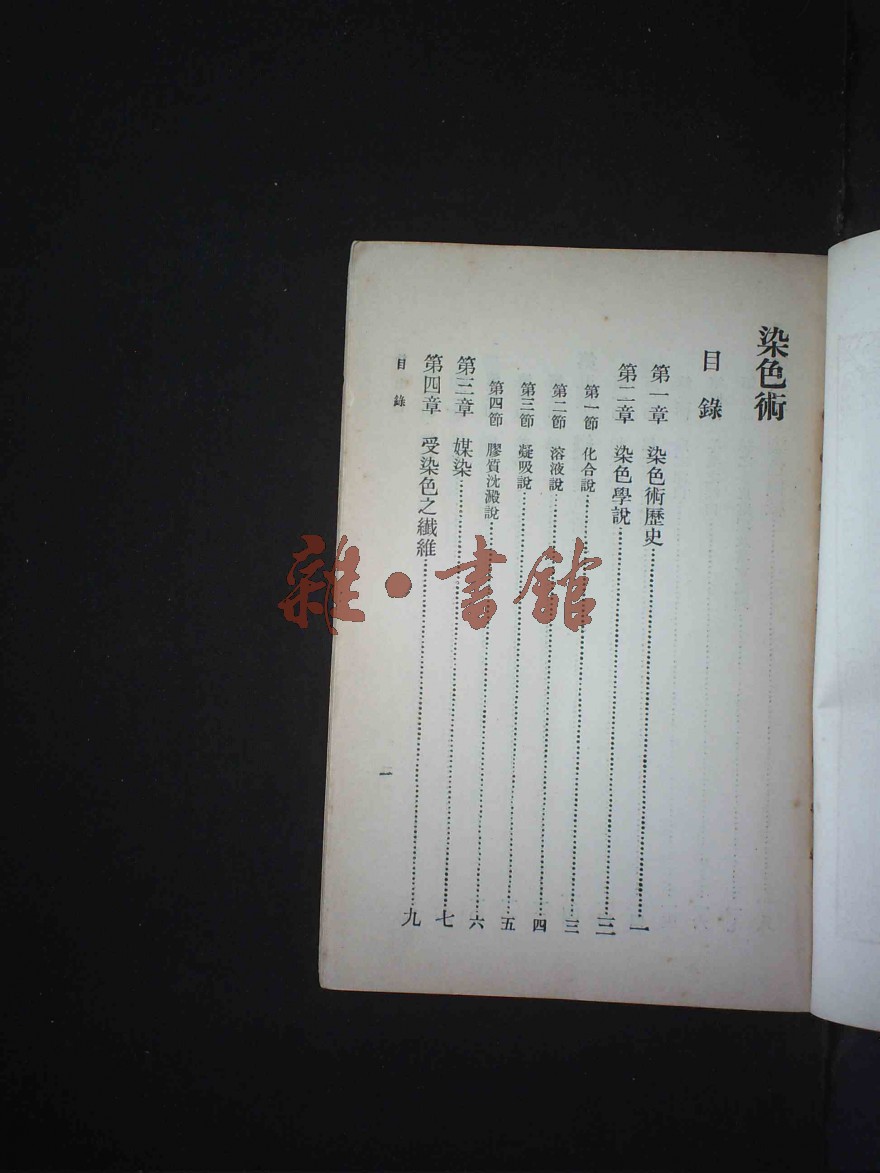 染色術
目錄
第一章 染色術歷史 一
第二章 染色學說 三
第一節 化合說 三
第二節 溶液說 四
第三節 凝吸說 五
第四節 膠質沈澱說 六
第三章 媒染 七
第四章 受染色之纖維 九
目錄
一
雜·書館